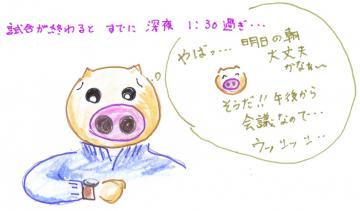 試合が終わると すでに 深夜 1:30過ぎ・・・
やばッ・・・ 明日の朝
大丈夫
かなぁ〜
そうだ!! 午後から
会議なので・・・
ウッシッシ・・・